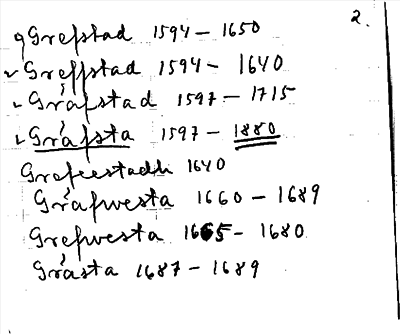 2.
Grefstad 1594 – 1650
Greffstad 1594 – 1640
Gräfstad 1597 – 1715
Gräfsta 1597 – 1880
Grefvestadh 1640
Gräfwesta 1660 – 1689
Grefwesta 1665 – 1680
Grästa 1687 – 1689